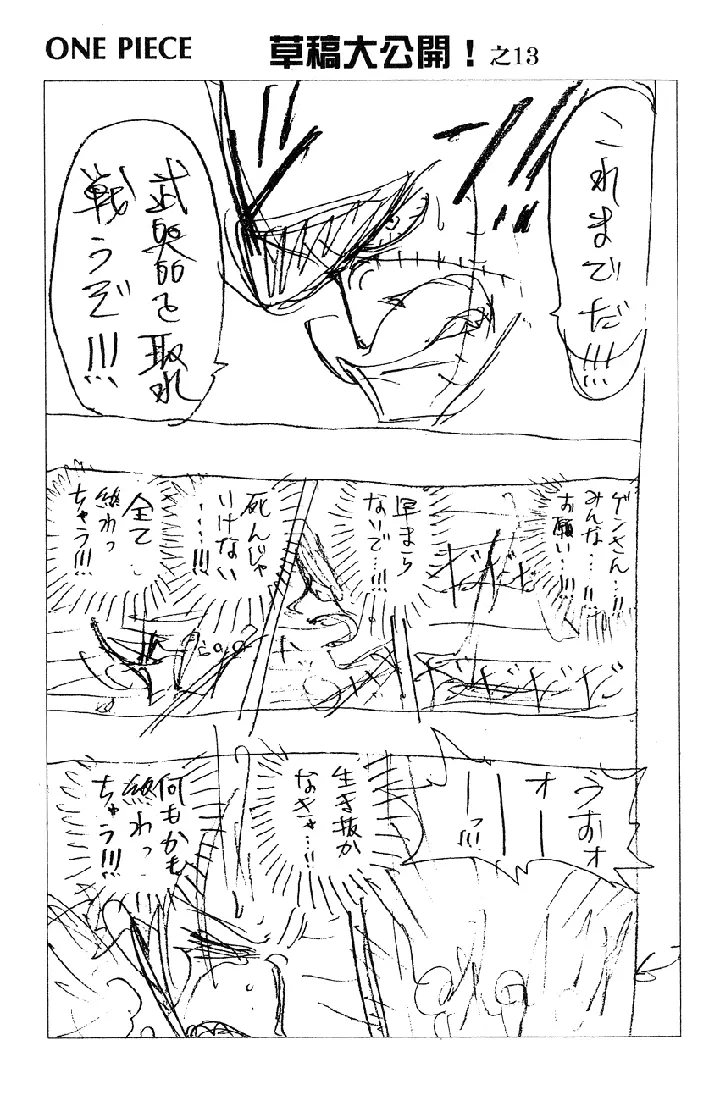 ONE PIECE 草稿大公開！之13
これまでだ!!!
武器を取れ
戦うぞ!!!
ゲンさん…!!
みんな…!!
お願い…!!
早まら
ないで…!!
死んじゃ
いけない
…!!
全て
終わっ
ちゃう!!!
ダダダ
ダダダダダ
うおォ
オー
ーー…!!!
生き抜か
なきゃ…!!
何もかも
終わっ
ちゃう!!!